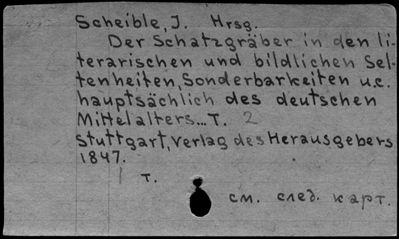 Scheible, J. Hrsg.
Der Schatzgräber in den li-
terarischen und bildlichen Sel-
tenheiten, Sonderbarkeiten u.c.
hauptsächlich des deutschen
Mittelalters... T. 2
Stuttgart, Verlag des Herausgebers
1847.
1 т.
см. след. карт.